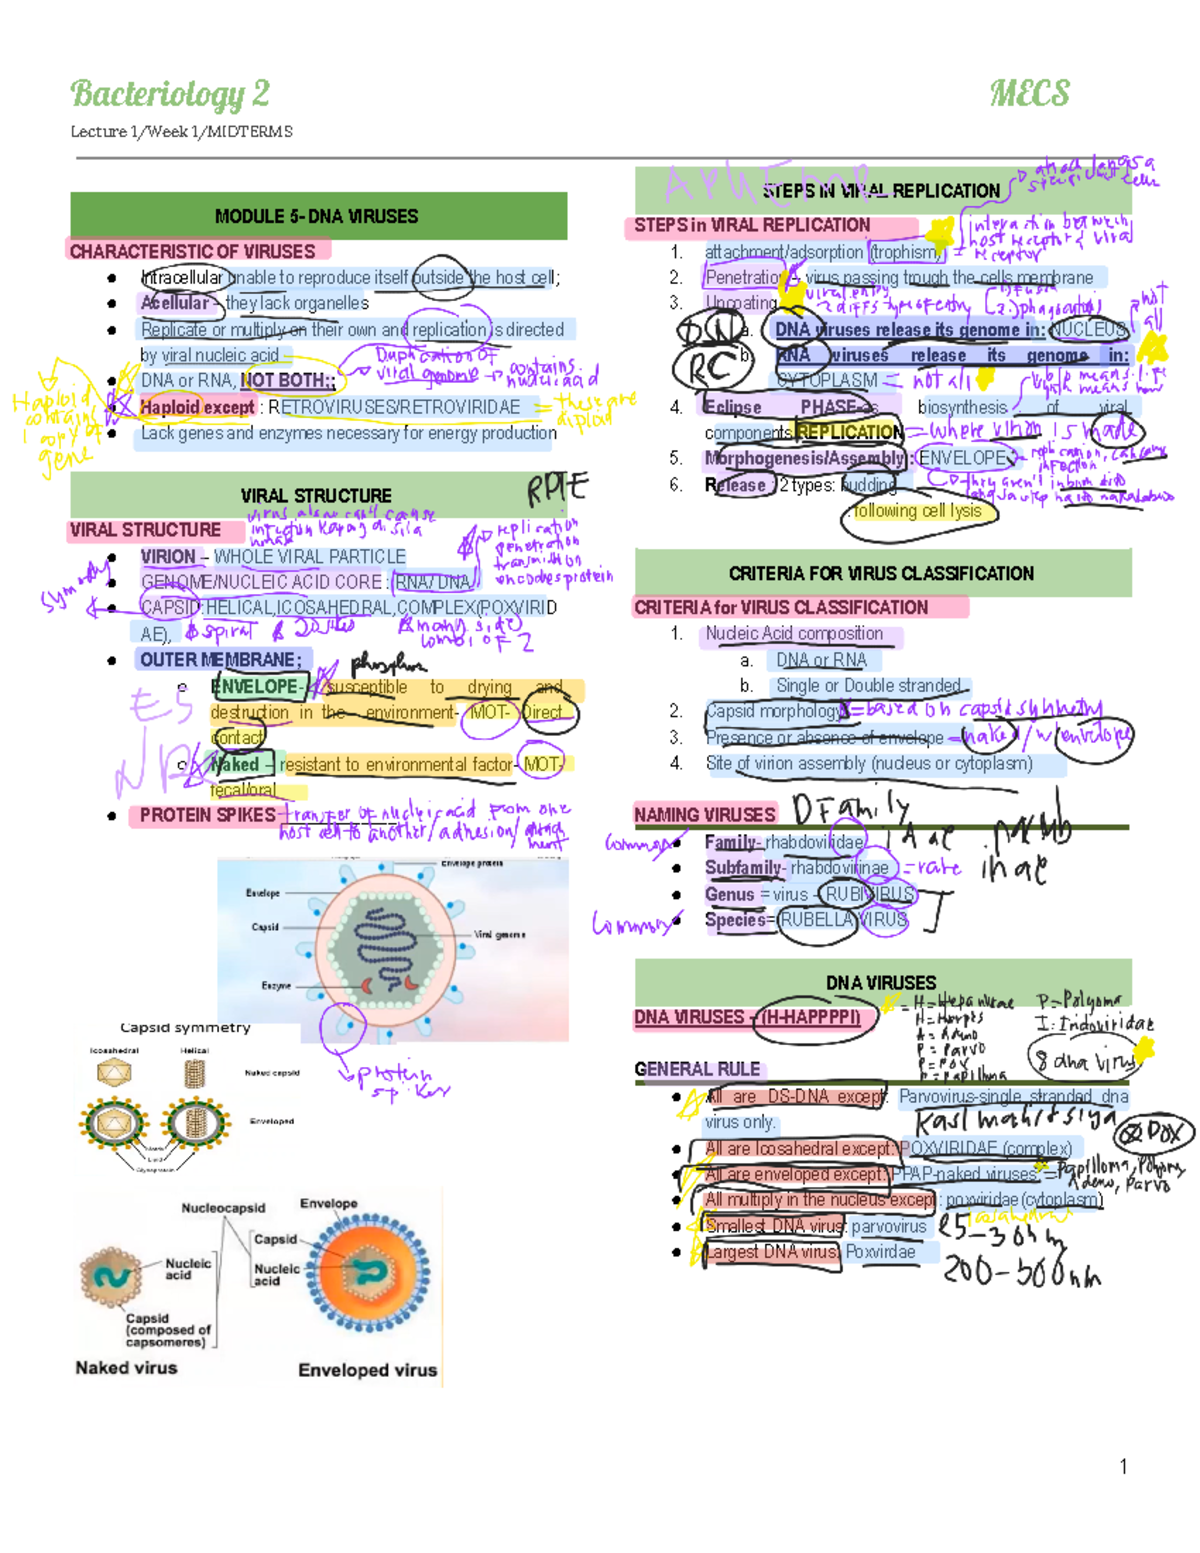 Bacteriology 2
MECS
Lecture 1/Week 1/MIDTERMS
MODULE 5- DNA VIRUSES
CHARACTERISTIC OF VIRUSES
● Intracellular unable to reproduce itself outside the host cell;
● Acellular – they lack organelles
● Replicate or multiply on their own and replication is directed
by viral nucleic acid
Duplication of
viral genome → contains
nucleic acid
● DNA or RNA, NOT BOTH;;
● Haploid except : RETROVIRUSES/RETROVIRIDAE
= these are
diploid
Haploid
contains
1 copy of
gene
● Lack genes and enzymes necessary for energy production
VIRAL STRUCTURE
RPTE
VIRAL STRUCTURE
● VIRION – WHOLE VIRAL PARTICLE
replication
penetration
transmission
encodes protein
● GENOME/NUCLEIC ACID CORE : RNA/ DNA
● CAPSID:HELICAL,ICOSAHEDRAL,COMPLEX(POXVIRID
AE),
spiral
● OUTER MEMBRANE;
○ ENVELOPE- susceptible to drying and
destruction in the environment- MOT- Direct
contact
ES
○ Naked – resistant to environmental factor- MOT-
fecal/oral
● PROTEIN SPIKES
transfer of nucleic acid from one
host cell to another/adhesion/attach
ment
Envelope protein
Envelope
Capsid
Viral genome
Enzyme
protein
spikes
Capsid symmetry
Icosahedral
Helical
Naked capsid
Enveloped
Nucleocapsid
Envelope
Capsid
Nucleic
acid
Nucleic
acid
Capsid
(composed of
capsomeres)
Naked virus
Enveloped virus
STEPS IN VIRAL REPLICATION
STEPS in VIRAL REPLICATION
1. attachment/adsorption (trophism)
interaction between
host receptor & viral
receptor
2. Penetration - virus passing trough the cells membrane
3. Uncoating
viral entry
a. DNA viruses release its genome in: NUCLEUS
b. RNA viruses release its genome in:
CYTOPLASM
= not all
RC
4. Eclipse PHASE-is biosynthesis of viral
components REPLICATION
=where virion is made
5. Morphogenesis/Assembly) : ENVELOPE
6. Release (2 types: budding
: following cell lysis
CRITERIA FOR VIRUS CLASSIFICATION
CRITERIA for VIRUS CLASSIFICATION
1. Nucleic Acid composition
a. DNA or RNA
b. Single or Double stranded
2. Capsid morphology
=based on capsid symmetry
3. Presence or absence of envelope
=naked/w/envelope
4. Site of virion assembly (nucleus or cytoplasm)
NAMING VIRUSES
Family
● Family- rhabdoviridae
● Subfamily- rhabdovirinae
= rare
inae
● Genus = virus – RUBIVIRUS
● Species= RUBELLA VIRUS
common
DNA VIRUSES
DNA VIRUSES – (H-HAPPPPI)
H = Herpes
A = Adeno
P = Parvo
P = Pox
P = Papilloma
P = Polyoma
8 dna virus
GENERAL RULE
● All are DS-DNA except: Parvovirus-single stranded dna
virus only.
● All are Icosahedral except: POXVIRIDAE (complex)
POX
● All are enveloped except: PPAP-naked viruses
= Papilloma, Polyoma,
Adeno, Parvo
● All multiply in the nucleus except : poxviridae (cytoplasm)
● Smallest DNA virus: parvovirus
25-30nm
● Largest DNA virus: Poxvirdae
200-500nm
1